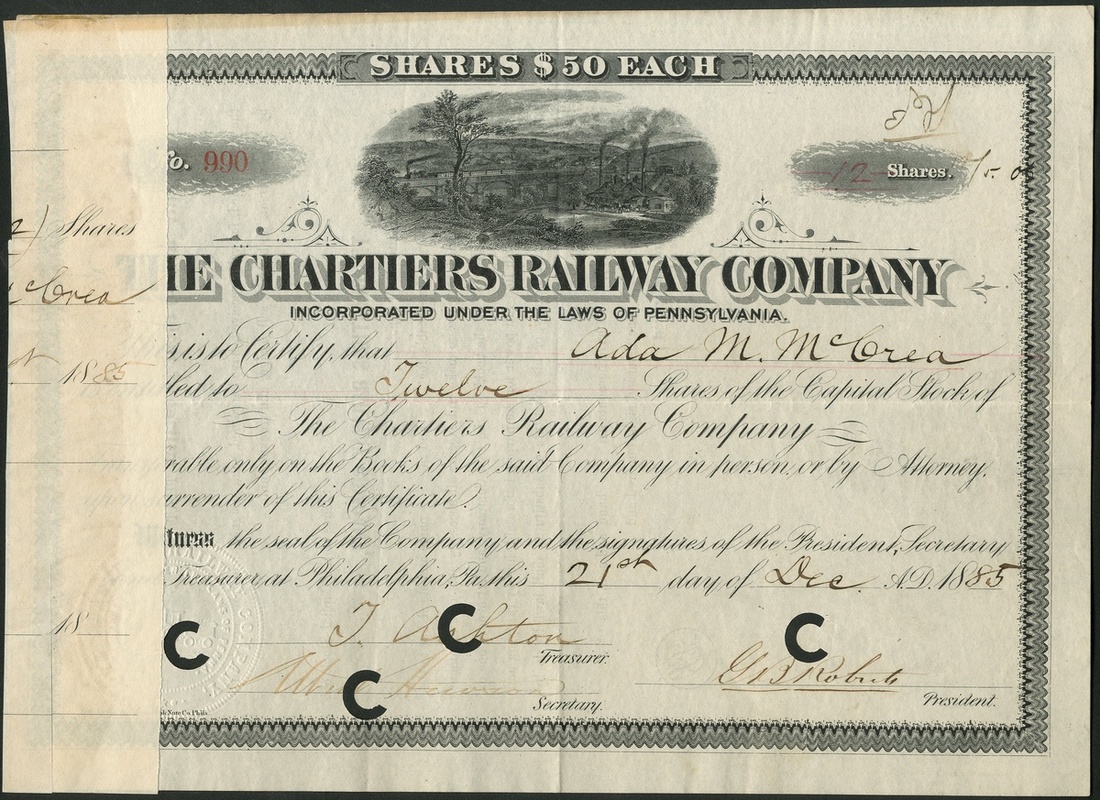 SHARES $50 EACH
o. 990
12 Shares.
2) Shares
HE CHARTIERS RAILWAY COMPANY
McCrea
INCORPORATED UNDER THE LAWS OF PENNSYLVANIA.
is is to Certify, that Ada M. McCrea
1885
led to Twelve Shares of the Capital Stock of
The Chartiers Railway Company
rable only on the Books of the said Company in person, or by Attorney,
urrender of this Certificate.
the seal of the Company and the signatures of the President, Secretary
Treasurer, at Philadelphia, Pa. this 21st day of Dec. A.D. 1885
18
T. Ashton
Treasurer.
C C C C
G B Roberts
Secretary.
President.
Note Co. Phila